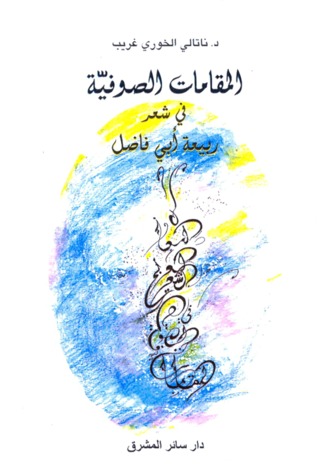 د. ناتالي الخوري غريب
المقامات الصوفيّة
في شعر
ربيعة أبي فاضل
دار سائر المشرق